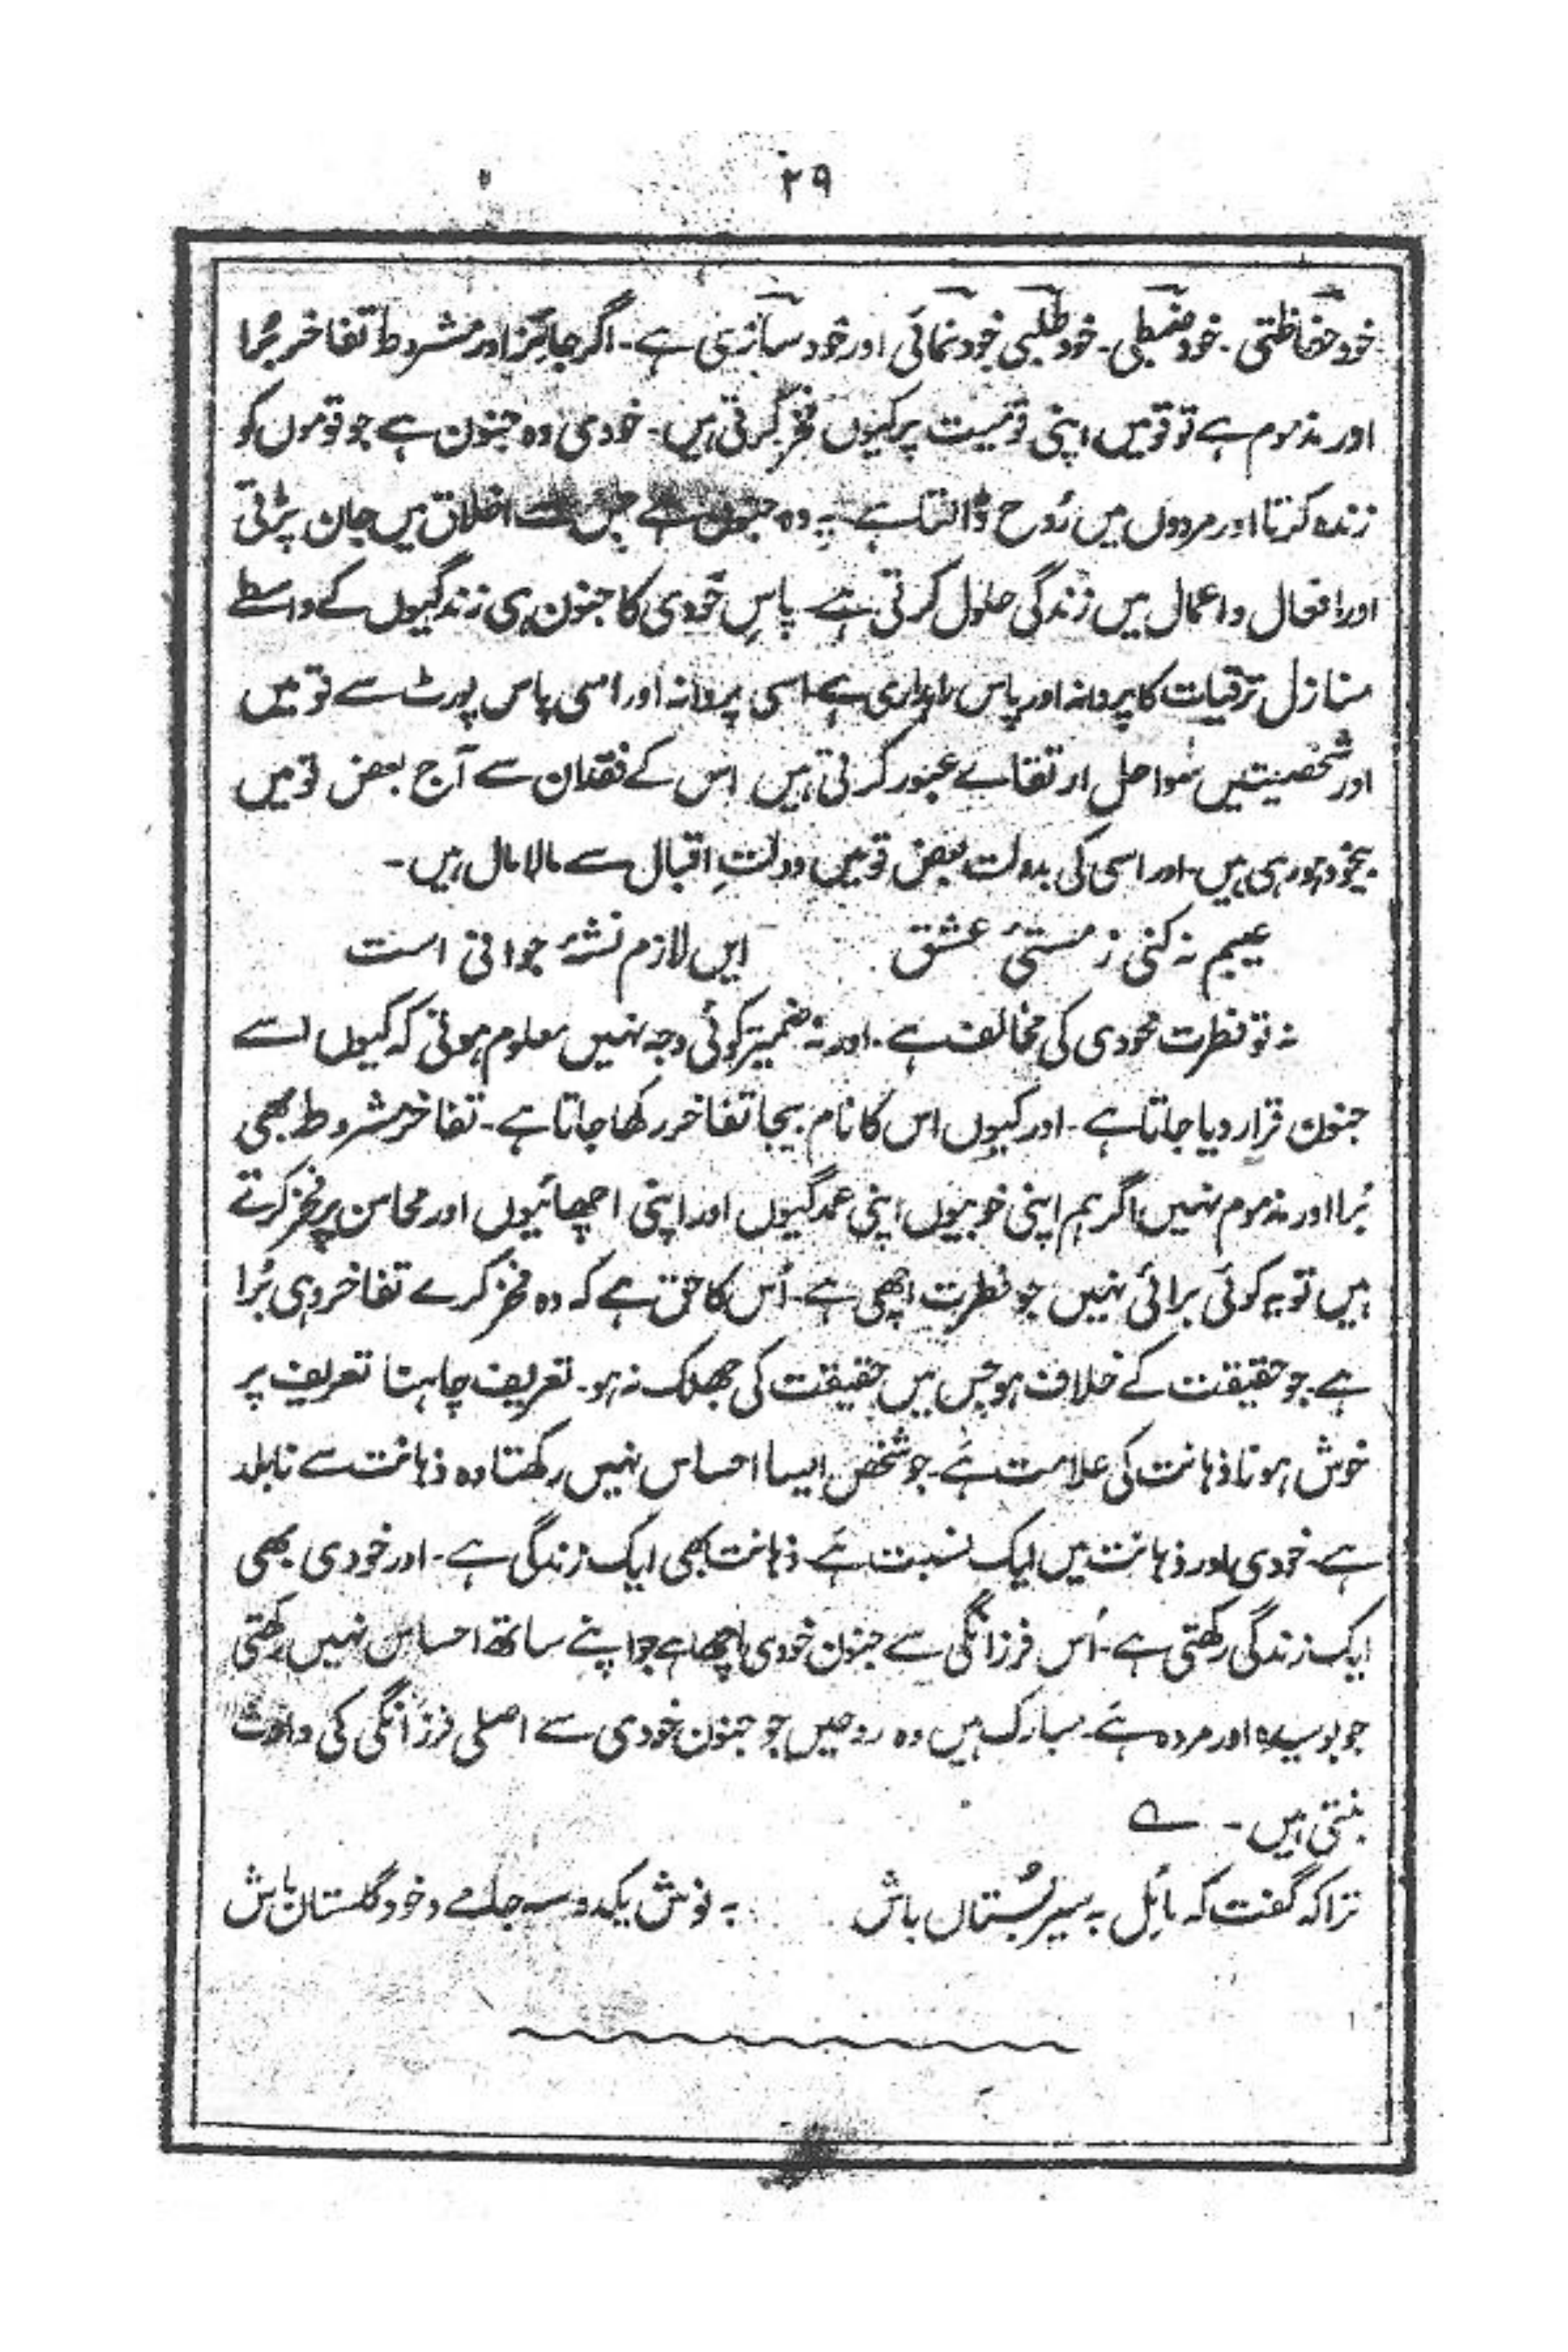 ۲۹
خود حفاظتی ۔ خود ضبطی ۔ خود طلبی خود نمائی اور خود سازی ہے ۔ اگر جائز اور مشروط تفاخر بُرا
اور مذموم ہے تو قومیں اپنی قومیت پر کیوں فخر کرتی ہیں ۔ خودی وہ جنون ہے جو قوموں کو
زندہ کرتا اور مردوں میں رُوح ڈالتا ہے یہ وہ جنون ہے جس سے اخلاق میں جان پڑتی
اور افعال و اعمال میں زندگی حلول کرتی ہے پاسِ خودی کا جنون ہی زندگیوں کے واسطے
منازل ترقیات کا پروانہ اور پاس راہداری ہے اسی پروانہ اور اسی پاس پورٹ سے قومیں
اور شخصیتیں سواحل ارتقاے عبور کرتی ہیں اس کے فقدان سے آج بعض قومیں
بیخود ہو رہی ہیں ۔ اور اسی کی بدولت بعض قومیں دولتِ اقبال سے مالا مال ہیں ۔
عیبم نہ کنی ز مستیٔ عشق ایں لازم نشۂ جوانی است
نہ تو فطرت خودی کی مخالف ہے ۔ اور نہ ضمیر کوئی وجہ نہیں معلوم ہوتی کہ کیوں اسے
جنون قرار دیا جاتا ہے ۔ اور کیوں اس کا نام بیجا تفاخر رکھا جاتا ہے ۔ تفاخر مشروط بھی
بُرا اور مذموم نہیں اگر ہم اپنی خوبیوں اپنی عمدگیوں اور اپنی اچھائیوں اور محاسن پر فخر کرتے
ہیں تو یہ کوئی برائی نہیں جو فطرت اچھی ہے ۔ اُس کا حق ہے کہ وہ فخر کرے تفاخر وہی بُرا
ہے ۔ جو حقیقت کے خلاف ہو جس میں حقیقت کی جھلک نہ ہو ۔ تعریف چاہنا تعریف پر
خوش ہونا ذہانت کی علامت ہے ۔ جو شخص ایسا احساس نہیں رکھتا وہ ذہانت سے نابلد
ہے ۔ خودی اور ذہانت میں ایک نسبت ہے ۔ ذہانت بھی ایک زندگی ہے ۔ اور خودی بھی
ایک زندگی رکھتی ہے ۔ اُس فرزانگی سے جنون خودی اچھا ہے جو اپنے ساتھ احساس نہیں رکھتی
جو بوسیدہ اور مردہ ہے ۔ مبارک ہیں وہ روحیں جو جنون خودی سے اصلی فرزانگی کی وارث
بنتی ہیں ۔ ے
ترا کہ گفت کہ مائل بہ سیر بُستاں باش بہ نوش یکدو سہ جامے و خود گلستان باش